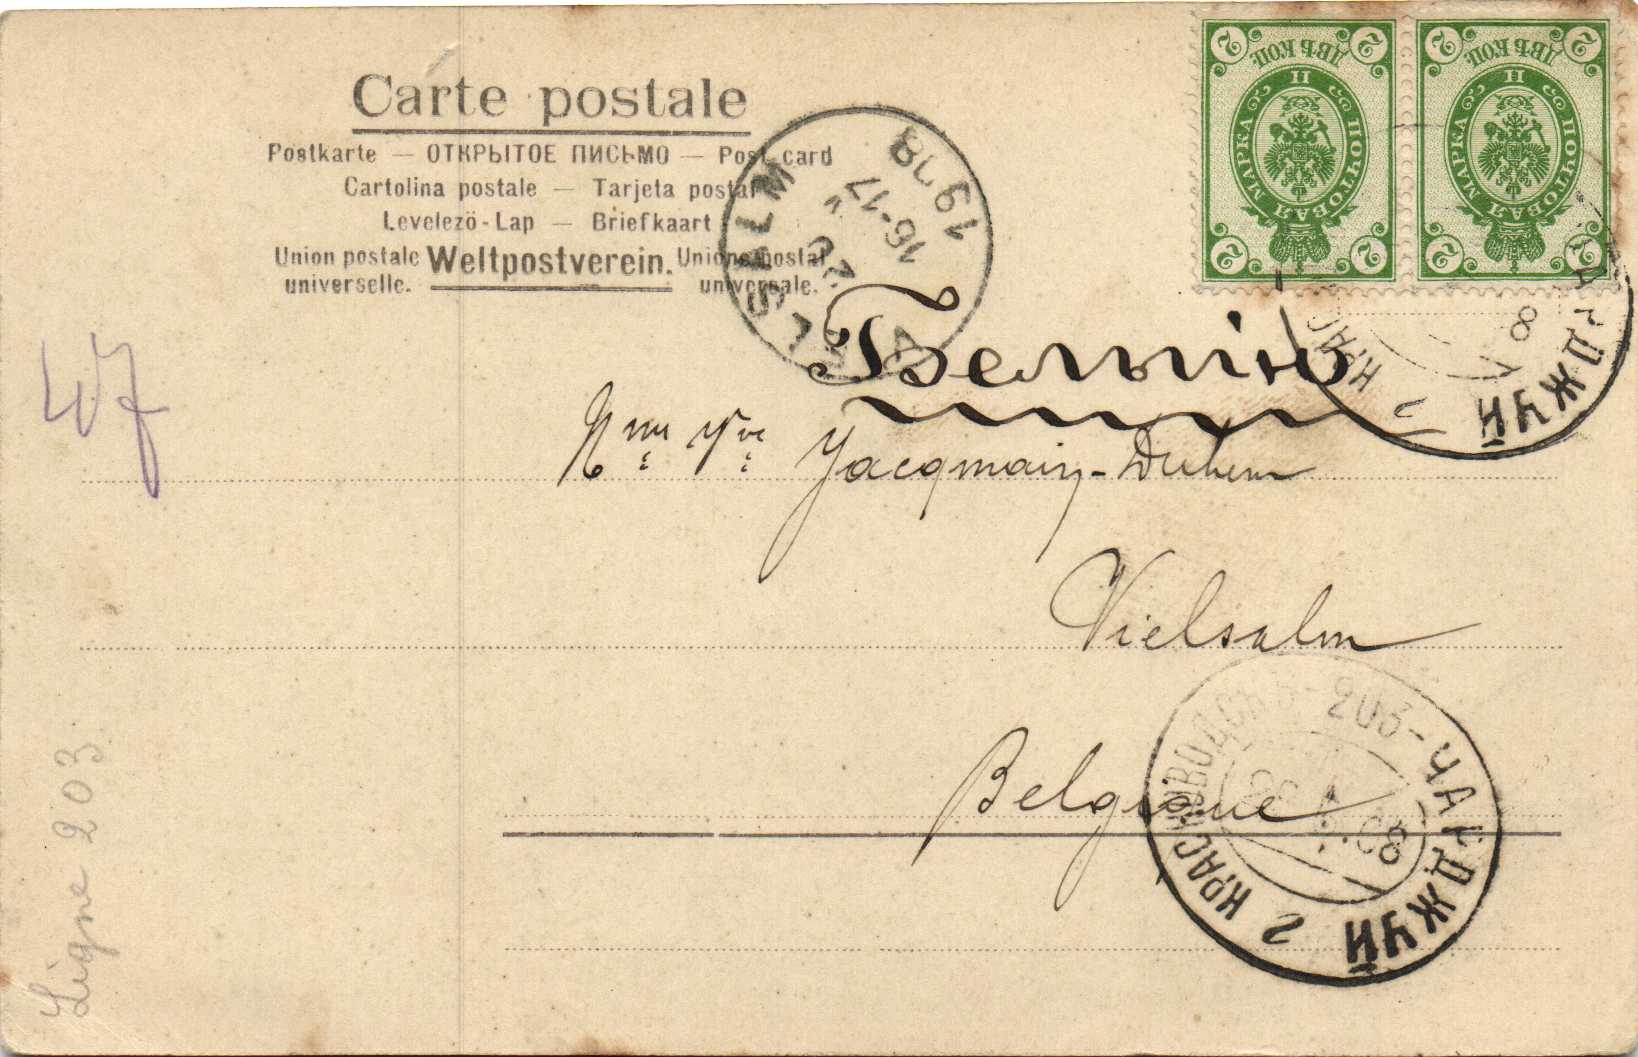 Carte postale
Postkarte — ОТКРЫТОЕ ПИСЬМО — Post card
Cartolina postale — Tarjeta postal
Levelező-Lap — Briefkaart
Union postale universelle. Weltpostverein. Unione postal universale.
ДВѢ КОП.
2 2
П
ПОЧТОВАЯ МАРКА
2 2
ДВѢ КОП.
2 2
П
ПОЧТОВАЯ МАРКА
2 2
VIELSALM
16-17
1908
КРАС
ЧАРДЖУЙ
8
Бельгію
Jacqmain-Duhem
Vielsalm
Belgique
КРАСНОВОДСКЪ-203-ЧАРДЖУЙ
08
2
Ligne 203